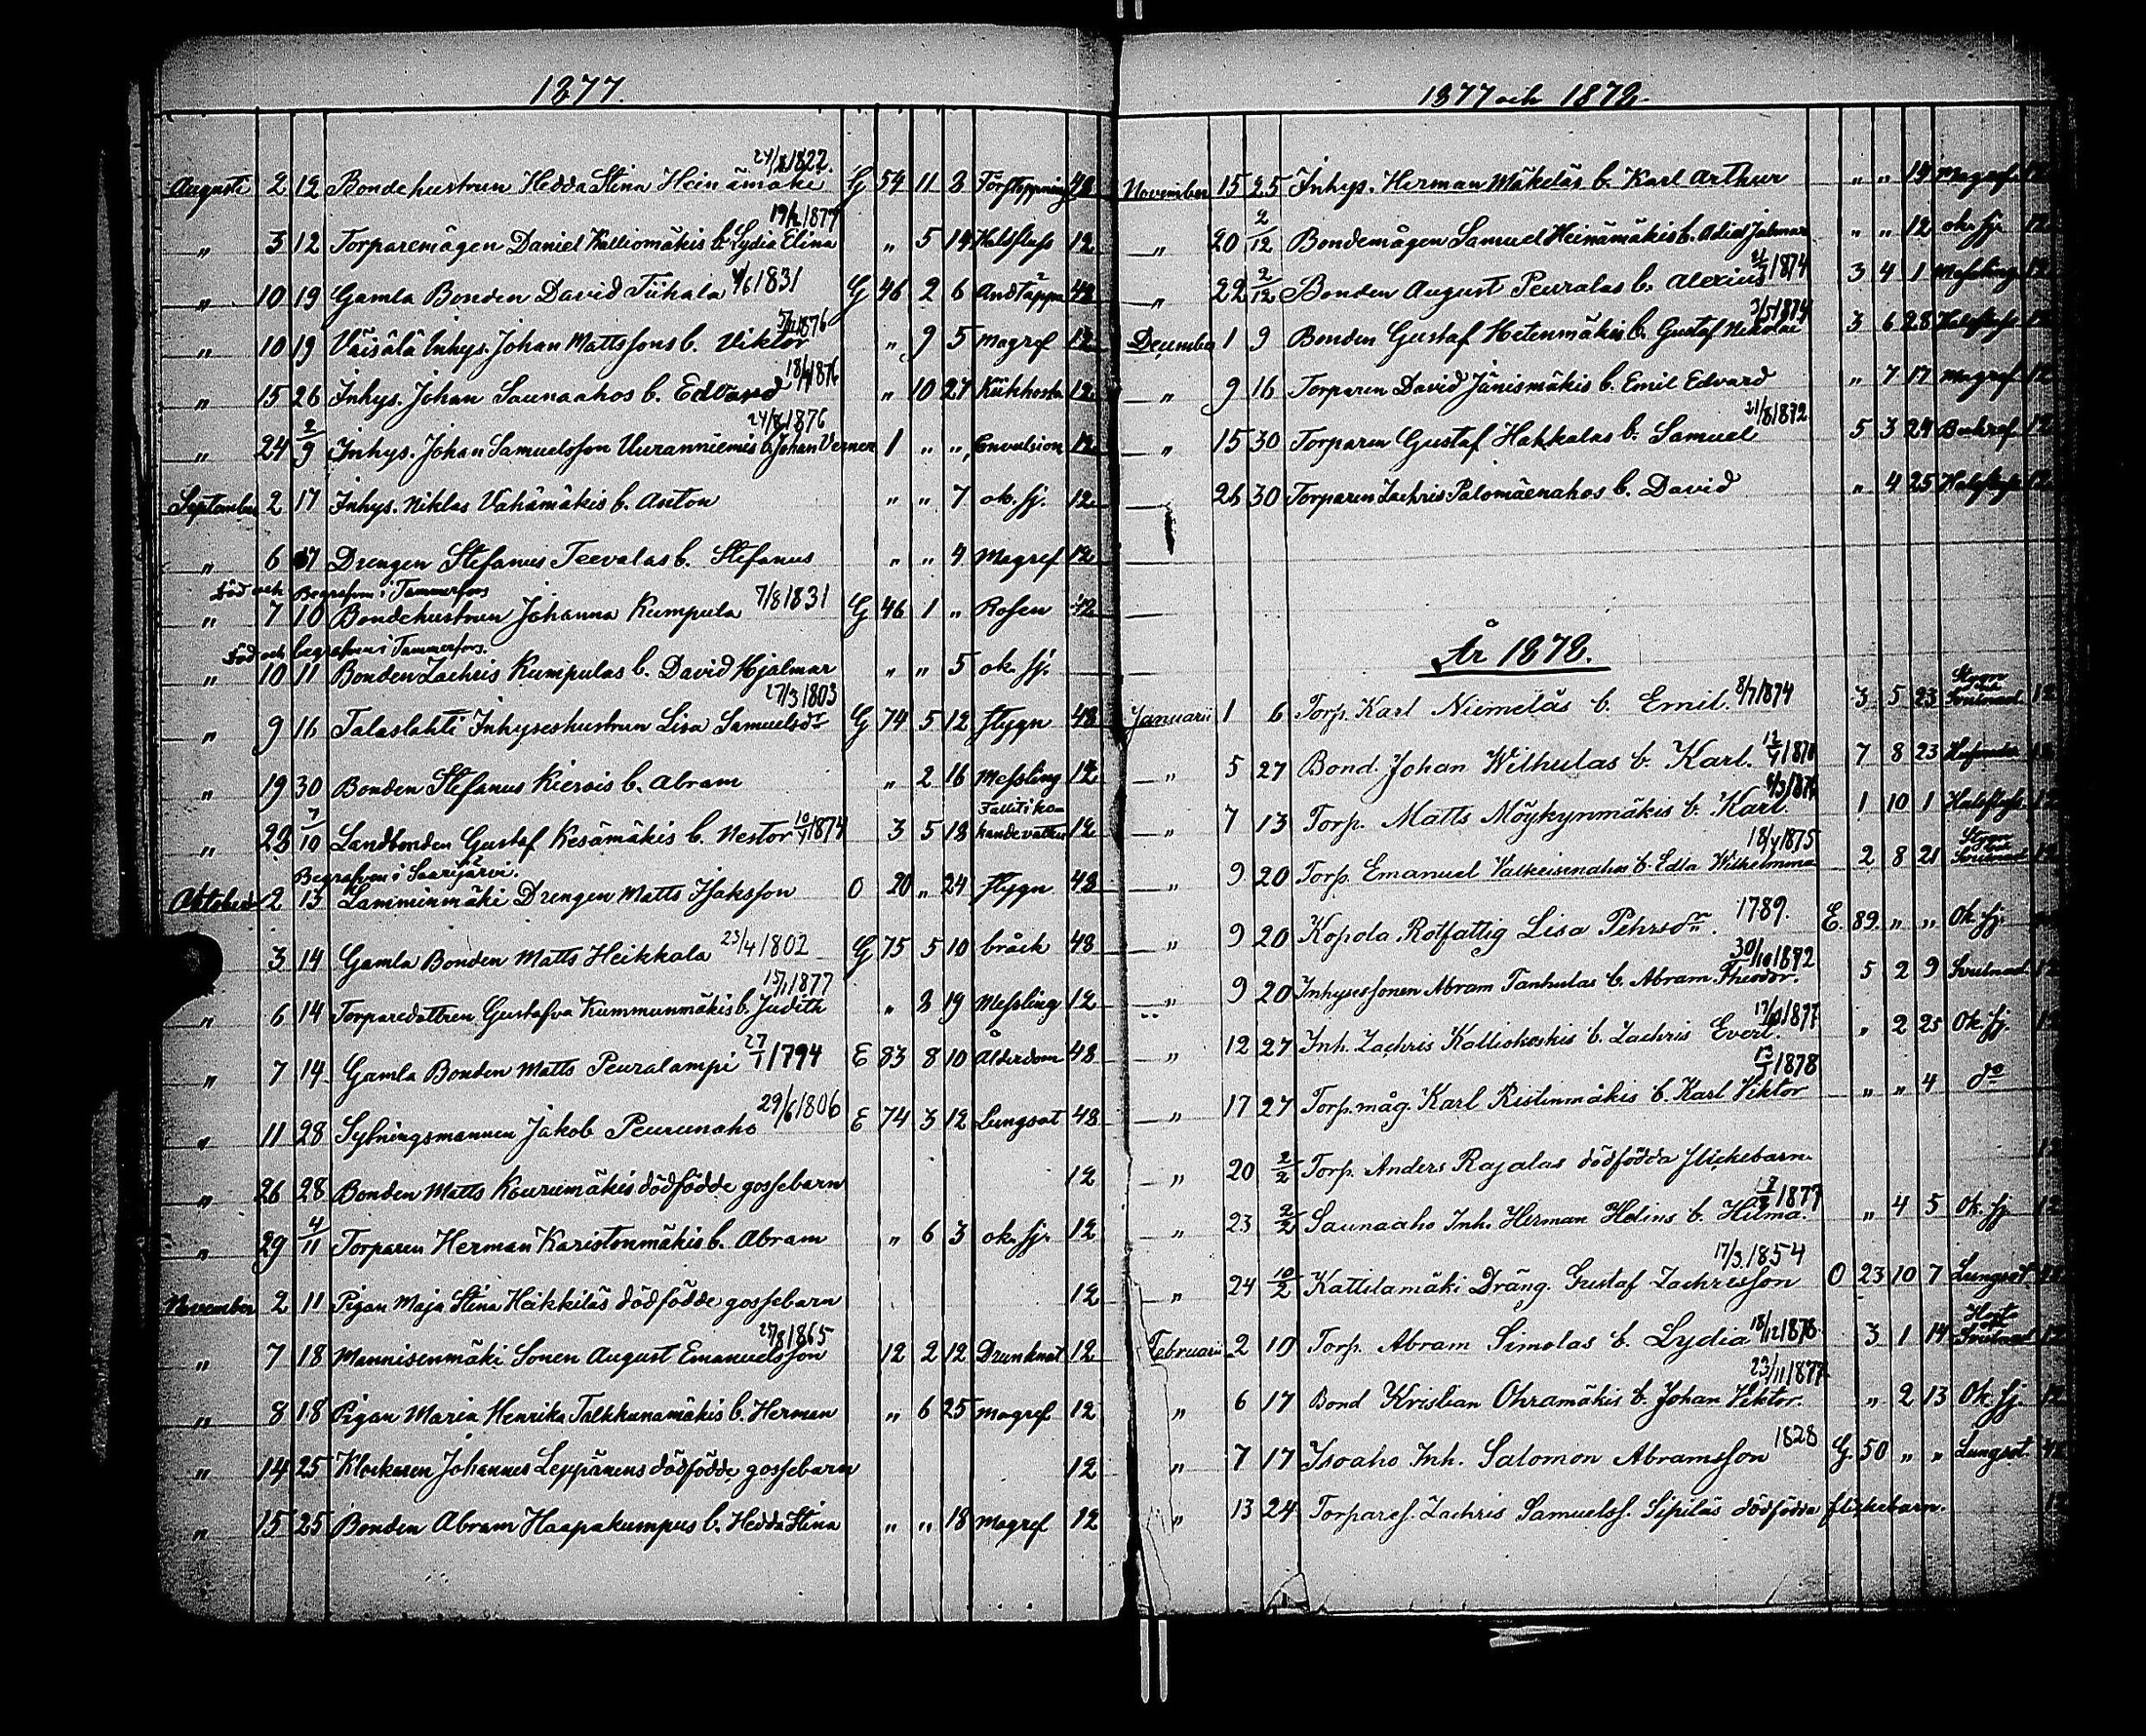 1877.
24/8 1822.
Augusti 2 12 Bondehustrun Hedda Stina Heinämäki G 54 11 8 Förstoppning 48
19/2 1877
" 3 12 Torparemågen Daniel Kalliomäkis b. Lydia Elina " 5 14 Halsfluss 12
" 10 19 Gamla Bonden David Tiihala 4/6 1831 G 46 2 6 Andtäppa 48
1876
" 10 19 Väisälä Inhys. Johan Mattssons b. Viktor " 9 5 Magref 12
1876
" 15 26 Inhys. Johan Saunaahos b. Edvard " 10 27 Kikhosta 12
24/8 1876
" 24 2/9 Inhys. Johan Samuelsson Uuranniemis b. Johan Verner 1 " " Convulsion 12
September 2 17 Inhys. Niklas Vahämäkis b. Anton " " 7 ok. sj. 12
" 6 17 Drengen Stefanus Teevalas b. Stefanus " " 4 Magref 12
död och Begrafven i Tammerfors
" 7 10 Bondehustrun Johanna Kumpula 7/8 1831 G 46 1 " Rosen 12
död och begrafven i Tammerfors.
" 10 11 Bonden Zachris Kumpulas b. David Hjalmar " " 5 ok. sj.
27/3 1803
" 9 16 Talaslahti Inhyseshustrun Lisa Samuelsdr G 74 5 12 stygn 48
" 19 30 Bonden Stefanus Kierois b. Abram " 2 16 Messling 12
" 28 7/10 Landbonden Gustaf Kesämäkis b. Nestor 10/4 1874 3 5 18 Fallit i kokande vatten 12
Begrafven i Saarijärvi.
Oktober 2 13 Lamminmäki Drengen Matts Isaksson O 20 " 24 stygn 48
" 3 14 Gamla Bonden Matts Heikkala 23/4 1802 G 75 5 10 bråck 48
15/1 1877
" 6 14 Torparedottren Gustafva Kummunmäkis b. Judith " 8 19 Messling 12
" 7 14 Gamla Bonden Matts Peuralampi 27/1 1794 E 83 8 10 Ålderdom 48
29/6 1806
" 11 28 Sytningsmannen Jakob Peurunaho E 74 3 12 Lungsot 48
" 26 28 Bonden Matts Kourumäkis dödfödde gossebarn 12
" 29 4/11 Torparen Herman Karistonmäkis b. Abram " 6 3 ok. sj. 12
November 2 11 Pigan Maja Stina Heikkiläs dödfödde gossebarn 12
25/8 1865
" 7 18 Mannisenmäki Sonen August Emanuelsson 12 2 12 Drunknat 12
" 8 18 Pigan Maria Henrika Talkkunamäkis b. Herman " 6 25 Magref 12
" 14 25 Klockaren Johannes Leppänens dödfödde gossebarn 12
" 15 25 Bonden Abram Haapakumpus b. Hedda Stina " " 18 Magref 12
1877 och 1878.
November 15 25 Inhys. Herman Mäkeläs b. Karl Arthur " " 14 Magref 12
" 20 2/12 Bondemågen Samuel Heinämäkis b. Jalmar " " 12 ok. sj. 12
1874
" 22 2/12 Bonden August Peuralas b. Alexius 3 4 1 Messling 12
3/5 1874
December 1 9 Bonden Gustaf Hetenmäkis b. Gustaf Nikolai 3 6 28 Halsfluss 12
" 9 16 Torparen David Jänismäkis b. Emil Edvard " 7 17 Magref 12
21/8 1872
" 15 30 Torparen Gustaf Hakkalas b. Samuel 5 3 24 12
26 30 Torparen Zachris Palomäenahos b. David " 4 25 Halsfluss 12
År 1878.
Januarii 1 6 Torp. Karl Niemeläs b. Emil. 8/7 1874 3 5 23 Svulnad 12
" 5 27 Bond. Johan Wilhulas b. Karl. 12/4 1870 7 8 23 12
6/3 1876
" 7 13 Torp. Matts Möykynmäkis b. Karl. 1 10 1 Halsfluss 12
18/4 1875
" 9 20 Torp. Emanuel Valkeisenahos b. Edla Wilhelmina 2 8 21 Svulnad 12
1789.
" 9 20 Kopola Rotfattig Lisa Pehrsdr. E. 89. " " Ok. sj.
30/10 1872
" 9 20 Inhysessonen Abram Tanhulas b. Abram Theodor. 5 2 9 Svulnad 12
1877
" 12 27 Inh. Zachris Kalliokoskis b. Zachris Evert. " 2 25 Ok. sj. 12
1878
" 17 27 Torp.måg. Karl Ristinmäkis b. Karl Viktor " " 4 do
" 20 2/2 Torp. Anders Rajalas dödfödda flickebarn. 12
1877
" 23 2/2 Saunaaho Inh. Herman Helins b. Hilma. " 4 5 Ok. sj. 12
17/3 1854
" 24 10/2 Kattilamäki Dräng. Gustaf Zachrisson O 23 10 7 Lungsot 48
Februarii 2 10 Torp. Abram Simolas b. Lydia 18/12 1876 3 1 14 Svulnad 12
23/11 1877
" 6 17 Bond Kristian Ohramäkis b. Johan Viktor. " 2 13 Ok. sj. 12
" 7 17 Isoaho Inh. Salomon Abramsson 1828 G. 50 " " Lungsot 48
" 13 24 Torpares. Zachris Samuelss. Sipiläs dödfödda flickebarn. 12